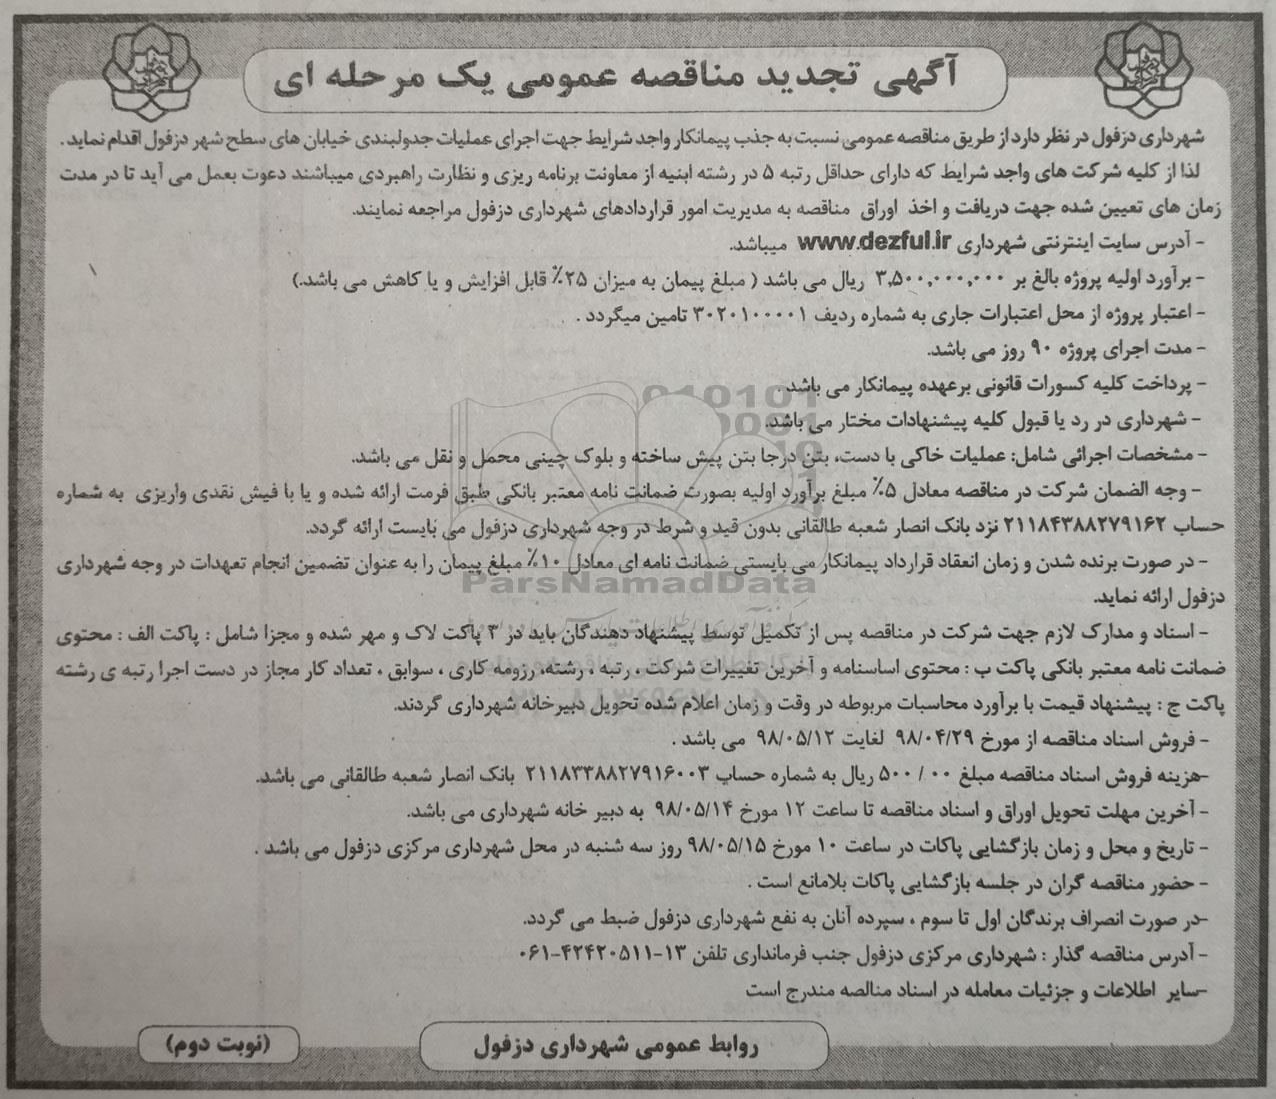 آگهی تجدید مناقصه عمومی یک مرحله ای
شهرداری دزفول در نظر دارد از طریق مناقصه عمومی نسبت به جذب پیمانکار واجد شرایط جهت اجرای عملیات جدولبندی خیابان های سطح شهر دزفول اقدام نماید .
لذا از کلیه شرکت های واجد شرایط که دارای حداقل رتبه ۵ در رشته ابنیه از معاونت برنامه ریزی و نظارت راهبردی میباشند دعوت بعمل می آید تا در مدت
زمان های تعیین شده جهت دریافت و اخذ اوراق مناقصه به مدیریت امور قراردادهای شهرداری دزفول مراجعه نمایند.
- آدرس سایت اینترنتی شهرداری www.dezful.ir میباشد.
- برآورد اولیه پروژه بالغ بر ۳,۵۰۰,۰۰۰,۰۰۰ ریال می باشد ( مبلغ پیمان به میزان ۲۵٪ قابل افزایش و یا کاهش می باشد.)
- اعتبار پروژه از محل اعتبارات جاری به شماره ردیف ۳۰۲۰۱۰۰۰۰۱ تامین میگردد .
- مدت اجرای پروژه ۹۰ روز می باشد.
- پرداخت کلیه کسورات قانونی برعهده پیمانکار می باشد .
- شهرداری در رد یا قبول کلیه پیشنهادات مختار می باشد.
- مشخصات اجرائی شامل: عملیات خاکی با دست، بتن درجا بتن پیش ساخته و بلوک چینی محمل و نقل می باشد.
- وجه الضمان شرکت در مناقصه معادل ۵٪ مبلغ برآورد اولیه بصورت ضمانت نامه معتبر بانکی طبق فرمت ارائه شده و یا با فیش نقدی واریزی به شماره
حساب ۲۱۱۸۴۳۸۸۲۷۹۱۶۲ نزد بانک انصار شعبه طالقانی بدون قید و شرط در وجه شهرداری دزفول می بایست ارائه گردد.
- در صورت برنده شدن و زمان انعقاد قرارداد پیمانکار می بایستی ضمانت نامه ای معادل ۱۰٪ مبلغ پیمان را به عنوان تضمین انجام تعهدات در وجه شهرداری
دزفول ارائه نماید.
- اسناد و مدارک لازم جهت شرکت در مناقصه پس از تکمیل توسط پیشنهاد دهندگان باید در ۳ پاکت لاک و مهر شده و مجزا شامل : پاکت الف : محتوی
ضمانت نامه معتبر بانکی پاکت ب : محتوی اساسنامه و آخرین تغییرات شرکت ، رتبه ، رشته، رزومه کاری ، سوابق ، تعداد کار مجاز در دست اجرا رتبه ی رشته
پاکت ج : پیشنهاد قیمت با برآورد محاسبات مربوطه در وقت و زمان اعلام شده تحویل دبیرخانه شهرداری گردند.
- فروش اسناد مناقصه از مورخ ۹۸/۰۴/۲۹ لغایت ۹۸/۰۵/۱۲ می باشد .
-هزینه فروش اسناد مناقصه مبلغ ۵۰۰/۰۰ ریال به شماره حساب ۲۱۱۸۳۳۸۸۲۷۹۱۶۰۰۳ بانک انصار شعبه طالقانی می باشد.
- آخرین مهلت تحویل اوراق و اسناد مناقصه تا ساعت ۱۲ مورخ ۹۸/۰۵/۱۴ به دبیر خانه شهرداری می باشد.
- تاریخ و محل و زمان بازگشایی پاکات در ساعت ۱۰ مورخ ۹۸/۰۵/۱۵ روز سه شنبه در محل شهرداری مرکزی دزفول می باشد .
- حضور مناقصه گران در جلسه بازگشایی پاکات بلامانع است .
-در صورت انصراف برندگان اول تا سوم ، سپرده آنان به نفع شهرداری دزفول ضبط می گردد.
- آدرس مناقصه گذار : شهرداری مرکزی دزفول جنب فرمانداری تلفن ۱۳-۴۲۴۲۰۵۱۱-۰۶۱
-سایر اطلاعات و جزئیات معامله در اسناد منالصه مندرج است
روابط عمومی شهرداری دزفول
(نوبت دوم)
ParsNamadData